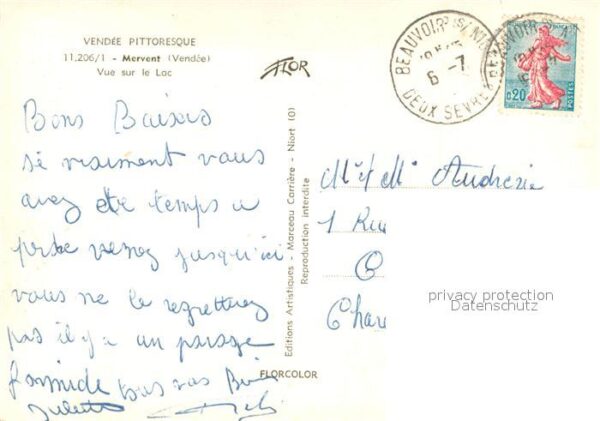 VENDÉE PITTORESQUE
11.206/1 - Mervent (Vendée)
Vue sur le Lac
FLOR
Bons Baisers
si vraiment vous
avez de temps a
perdre venez jusqu'ici
vous ne le regretterez
pas il y a un paysage
formide
Editions Artistiques - Marceau Carrière - Niort (O)
Reproduction interdite
FLORCOLOR
BEAUVOIR S/ NIORT
6 -7
DEUX SEVRES
0,20
POSTES
Mr et Me Audresie
1 Rue
privacy protection
Datenschutz